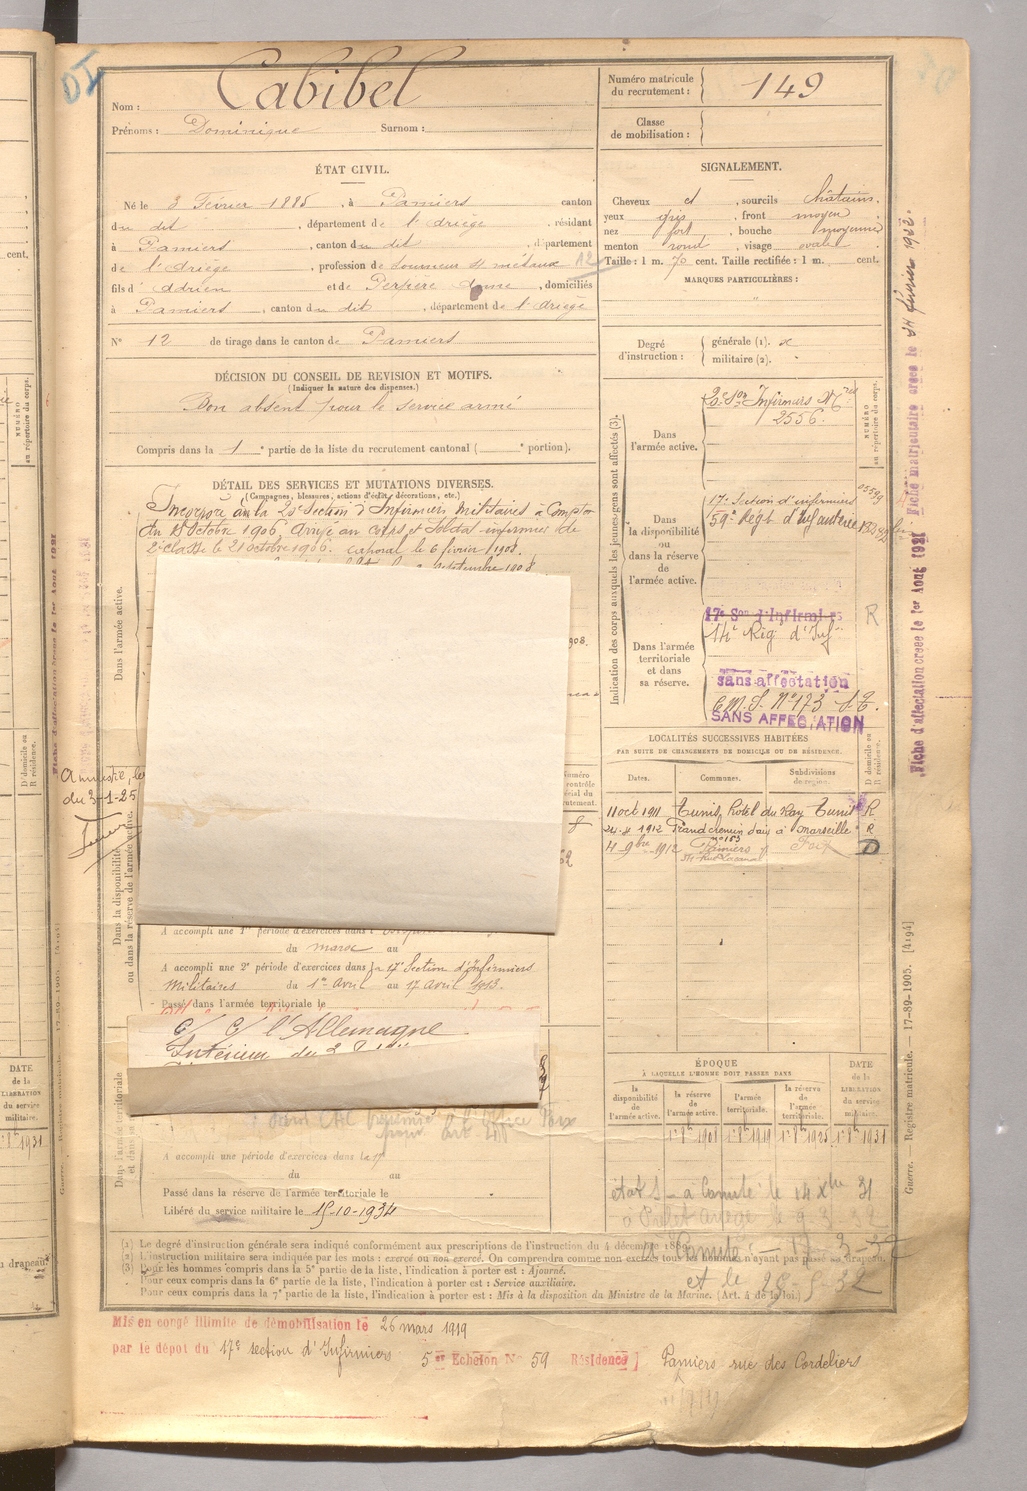 Nom : Cabibel
Prénoms : Dominique Surnom :
Numéro matricule du recrutement : 149
Classe de mobilisation :
ÉTAT CIVIL.
Né le 3 Février 1885, à Pamiers canton
du dit, département de l'Ariège, résidant
à Pamiers, canton du dit, département
de l'Ariège, profession de tourneur s/ métaux A2
fils d' Adrien et de Perpère Anne, domiciliés
à Pamiers, canton du dit, département de l'Ariège
N° 12 de tirage dans le canton de Pamiers
SIGNALEMENT.
Cheveux et, sourcils châtains.
yeux gris, front moyen
nez fort, bouche moyenne
menton rond, visage ovale
Taille : 1 m. 70 cent. Taille rectifiée : 1 m. cent.
MARQUES PARTICULIÈRES :
Degré d'instruction : générale (1).
militaire (2).
DÉCISION DU CONSEIL DE REVISION ET MOTIFS.
(Indiquer la nature des dispenses.)
Bon absent pour le service armé
Compris dans la 1e partie de la liste du recrutement cantonal ( e portion).
DÉTAIL DES SERVICES ET MUTATIONS DIVERSES.
(Campagnes, blessures, actions d'éclat, décorations, etc.)
Incorporé à la 20e Section d'Infirmiers Militaires à compter
du 8 Octobre 1906, arrivé au corps et soldat infirmier de
2e classe le 21 octobre 1906. caporal le 6 février 1908.
septembre 1908
Dans l'armée active.
Amnistie, loi
du 3-1-25
Dans la disponibilité ou dans la réserve de l'armée active.
A accompli une 1re période d'exercices dans
du maroc au
A accompli une 2e période d'exercices dans la 17e Section d'Infirmiers
Militaires du 1er Avril au 17 Avril 1913.
Passé dans l'armée territoriale le
C/ C/ l'Allemagne
Intérieur du 3
A accompli une période d'exercices dans le
du au
Passé dans la réserve de l'armée territoriale le
Libéré du service militaire le 15-10-1934
Indication des corps auxquels les jeunes gens sont affectés (3).
NUMÉRO au répertoire du corps.
Dans l'armée active.
20e Son Infirmiers Mres
2556.
Dans la disponibilité ou dans la réserve de l'armée active.
17e Section d'infirmiers
59e Régt d'Infanterie
Dans l'armée territoriale et dans sa réserve.
17e Son d'Infirmiers
14e Rég. d'Inf. R
sans affectation
C.M.I. N° 173
SANS AFFECTATION
LOCALITÉS SUCCESSIVES HABITÉES
PAR SUITE DE CHANGEMENTS DE DOMICILE OU DE RÉSIDENCE.
Dates. Communes. Subdivisions de région. D domicile ou R résidence.
11 oct 1911 Tunis, hotel du Ray Tunis R
24-4 1912 Grand chemin d'aix à Marseille R
n° 153
4 9bre 1912 Pamiers Foix D
ÉPOQUE
À LAQUELLE L'HOMME DOIT PASSER DANS
la disponibilité de l'armée active. la réserve de l'armée active. l'armée territoriale. la réserve de l'armée territoriale. DATE de la LIBÉRATION du service militaire.
1er 8bre 1908 1er 8bre 1919 1er 8bre 1925 1er 8bre 1931
état S - à Comité le 14 Xbre 31
à Préfet Ariège le 9 3 32
Comité - 17-3-32
et le 28-5-32
(1) Le degré d'instruction générale sera indiqué conformément aux prescriptions de l'instruction du 4 décembre 1889.
(2) L'instruction militaire sera indiquée par les mots : exercé ou non exercé. On comprendra comme non exercés tous les hommes n'ayant pas passé au drapeau.
(3) Pour les hommes compris dans la 5e partie de la liste, l'indication à porter est : Ajourné.
Pour ceux compris dans la 6e partie de la liste, l'indication à porter est : Service auxiliaire.
Pour ceux compris dans la 7e partie de la liste, l'indication à porter est : Mis à la disposition du Ministre de la Marine. (Art. 4 de la loi.)
Mis en congé illimité de démobilisation le 26 mars 1919
par le dépot du 17e section d'Infirmiers 5er Echelon N° 59 Résidence ] Pamiers rue des Cordeliers
Fiche d'affectation créée le 1er Août 1921
Fiche matriculaire créée le 14 février 1922.
Guerre. — Registre matricule. — 17-89-1905. [4194]
DATE de la LIBÉRATION du service militaire.